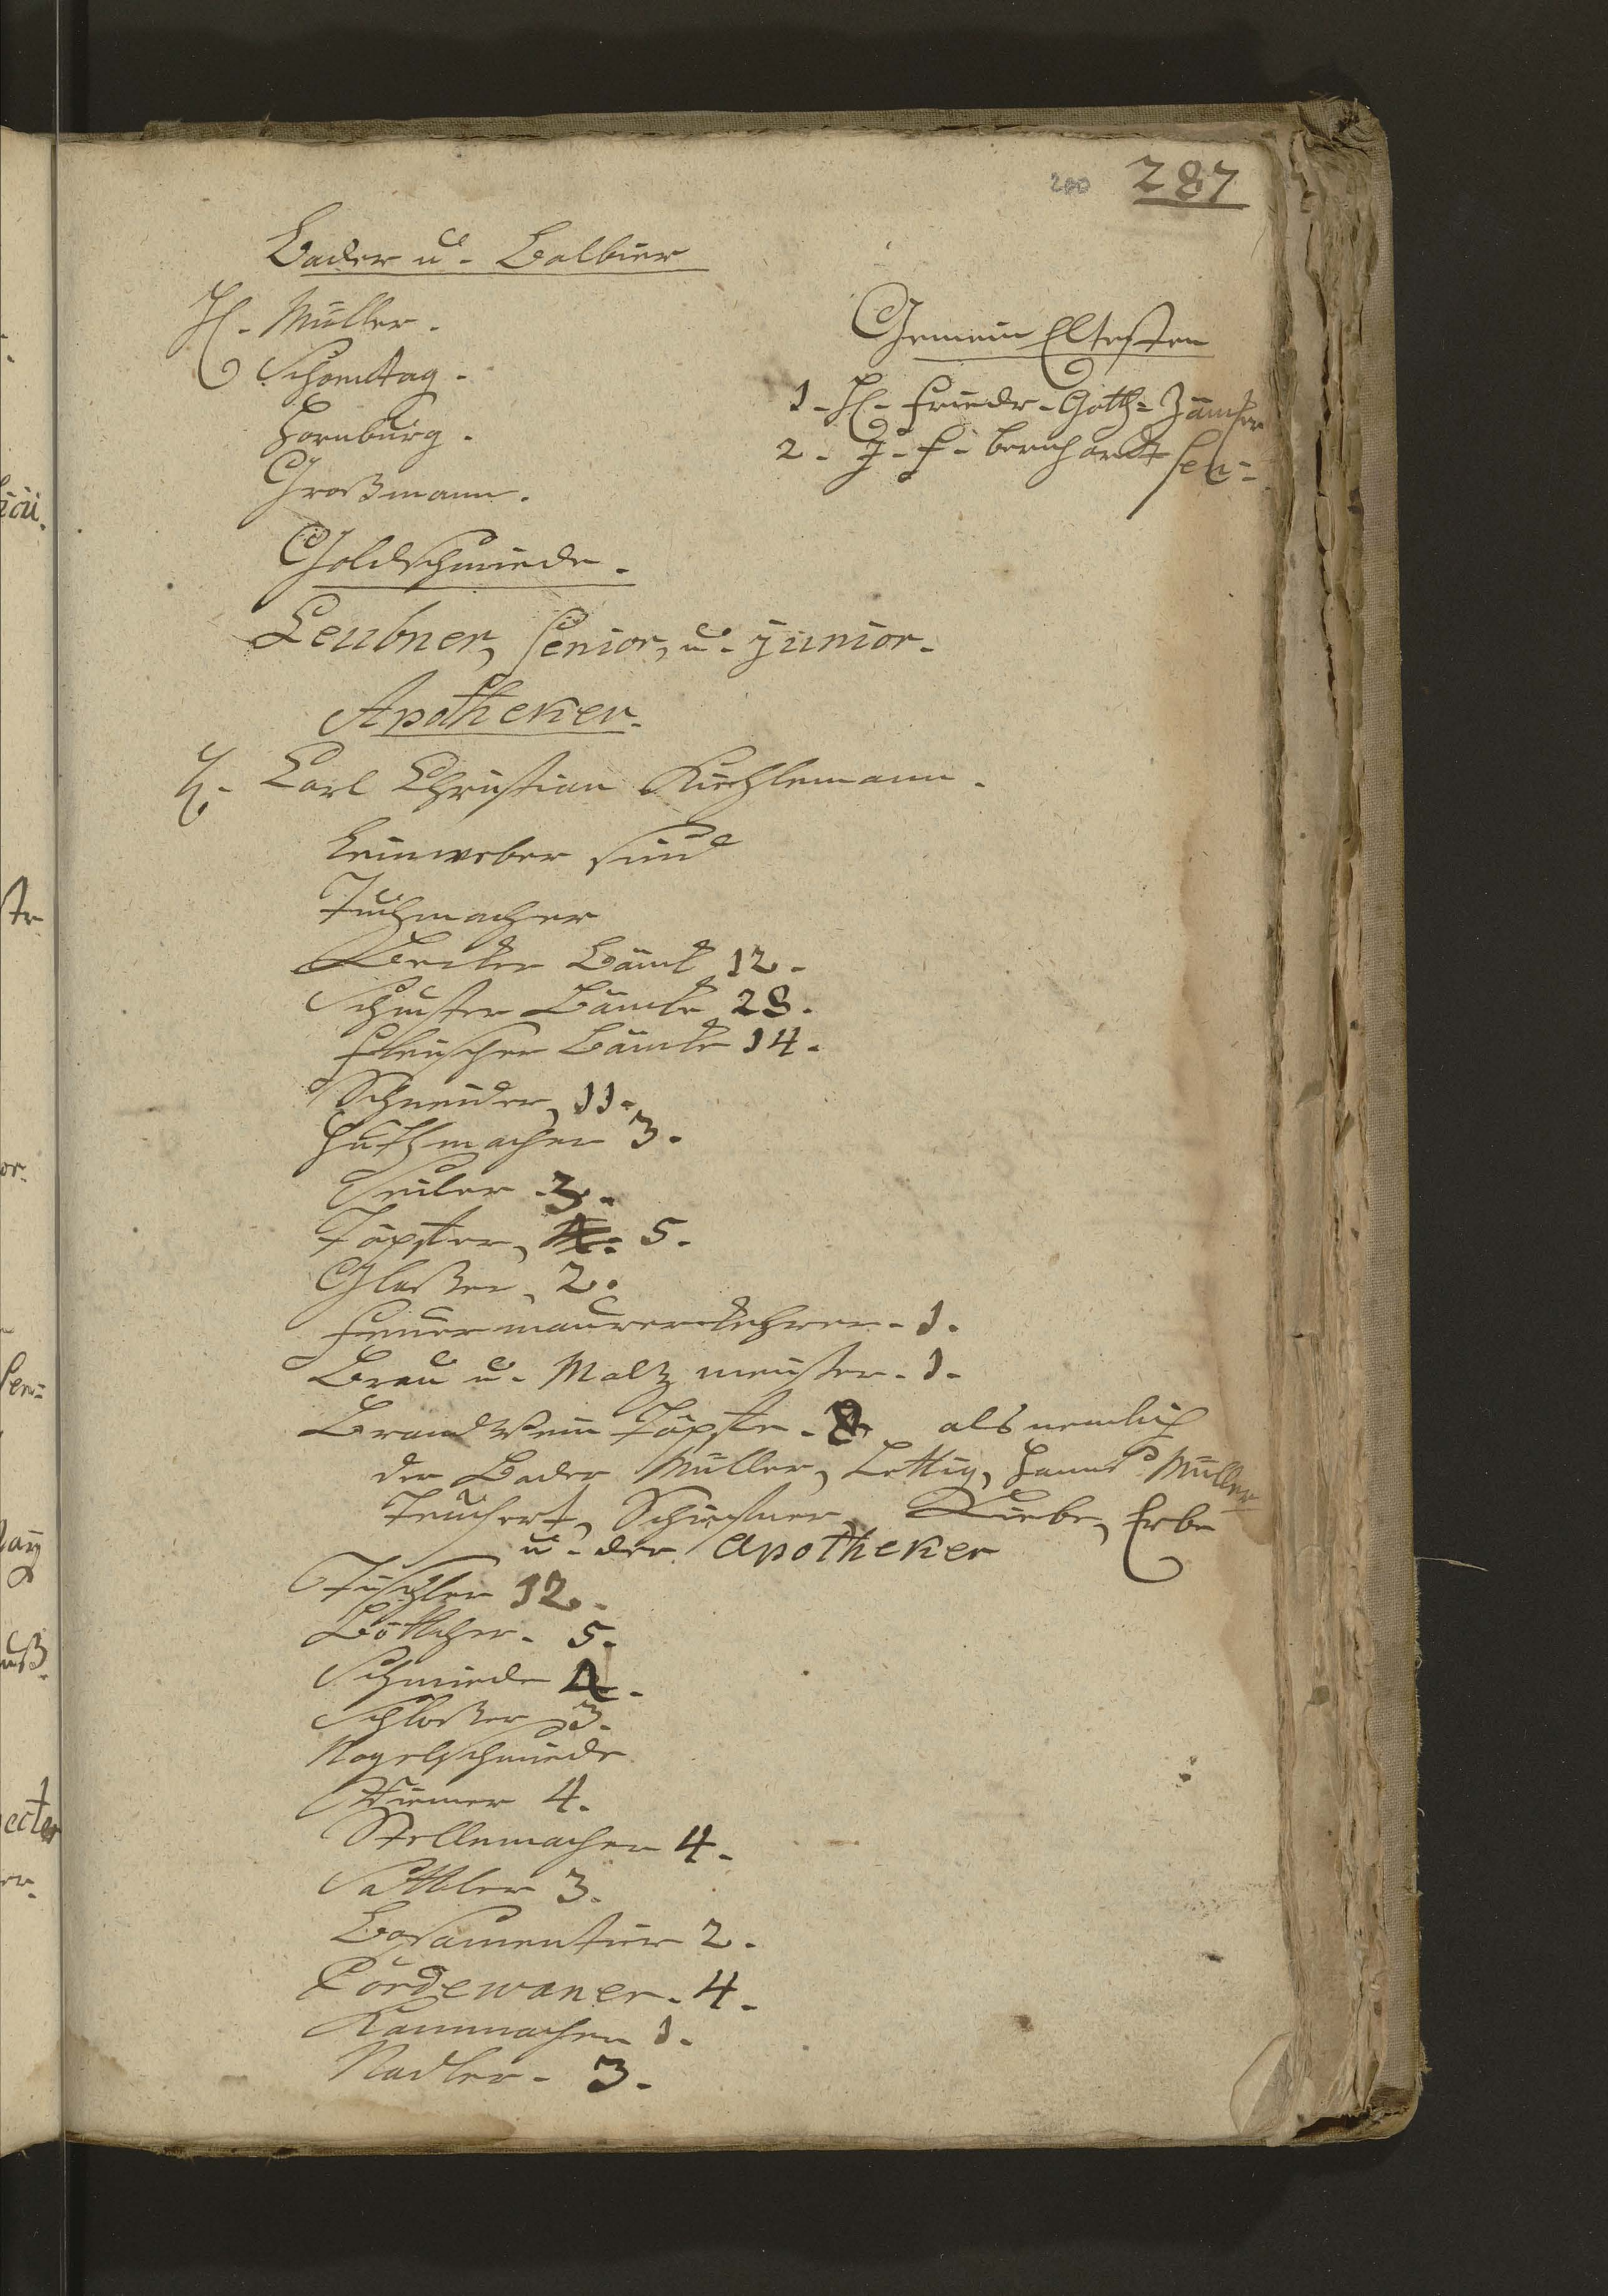 200 287
Bader u. Balbier
H. Müller.
Schomtag.
Hornburg.
Großmann.
Gemein Eltesten
1. H. Friedr. Gotth=
2. J. F. Bernhardt Sen=
Goldschmiede.
Leubner, Senior, u. junior.
Apotheker.
H. Carl Christian Kuchlemann.
Leinweber sind
Tuchmacher
Becker Bänck 12.
Schuster Bäncke 28.
Fleischer Bäncke 14.
Schneider, 11.
Huthmacher 3.
Seiler 3.
Töpffer, 5.
Glaßer, 2.
Feuermauerkehrer. 1.
Brau u. Maltz meister. 1.
Brandwein Töpffe. 8 als nemlich
der Bader Müller, Lettig, Hanns Müller
Teichert, Schirstner, Liebe, Erbe
u. der Apotheker
Tischler 12.
Böttcher. 5.
Schmiede 4.
Schloßer 3.
Nagelschmiede
Riemer 4.
Stellemacher 4.
Sattler 3.
Bosamentier 2.
Cordewaner. 4.
Kammacher 1.
Nadler. 3.